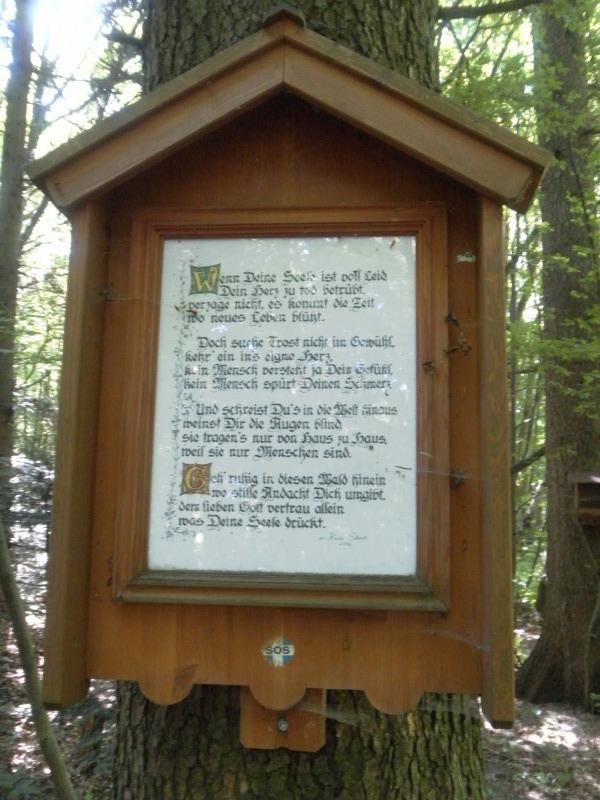 Wenn Deine Seele ist voll Leid
Dein Herz zu tod betrübt,
verzage nicht, es kommt die Zeit
wo neues Leben blüht.
Doch suche Trost nicht im Gewühl,
kehr' ein in's eigne Herz,
kein Mensch versteht ja Dein Gefühl,
kein Mensch spürt Deinen Schmerz
Und schreist Du's in die Welt hinaus
weinst Dir die Augen blind,
sie tragen's nur von Haus zu Haus,
weil sie nur Menschen sind.
Geh' ruhig in diesen Wald hinein
wo stille Andacht Dich umgibt,
dem lieben Gott vertrau allein
was Deine Seele drückt.
SOS